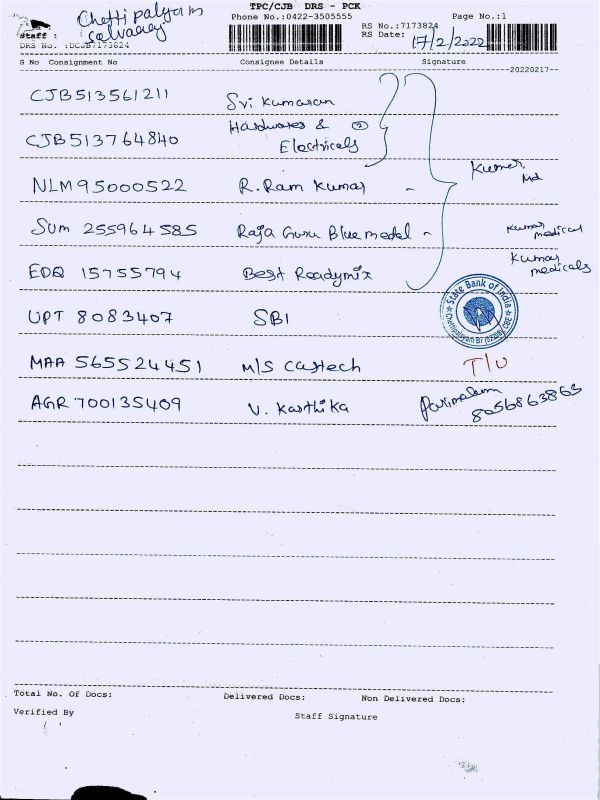 TPC/CJB DRS - PCK
Chetti palyam
Phone No.:0422-3505555
Page No.:1
Staff :
RS No.:7173824
RS Date: 17/2/2022
DRS No. :DCJB7173624
S No Consignment No Consignee Details Signature
20220217
CJB513561211 Sri Kumaran
CJB513764840 Hardwares & ②
Electricals
NLM95000522 R. Ram Kumar - Kumar Md
Sum 255964585 Raja Guru Blue medel - Kumar medical
EDQ 15755794 Best Readymix Kumar medicals
State Bank of India
UPT 8083407 SBI
MAA 565524451 M/S Castech T/U
AGR 700135409 V. Karthika Parimalam
8056863863
Total No. Of Docs: Delivered Docs: Non Delivered Docs:
Verified By Staff Signature